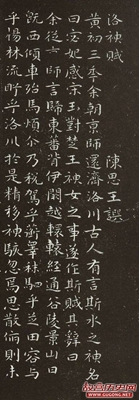 洛神賦 陳思王譔
黃初三年余朝京師還濟洛川古人有言斯水之神名
曰宓妃感宋玉對楚王神女之事遂作斯賦其辭曰
余從京師言歸東藩背伊闕越轘轅經通谷陵景山日
既西傾車殆馬煩尒乃稅駕乎蘅皋秣駟乎芝田容與
乎楊林流眄乎洛川於是精移神駭忽焉思散俯則未